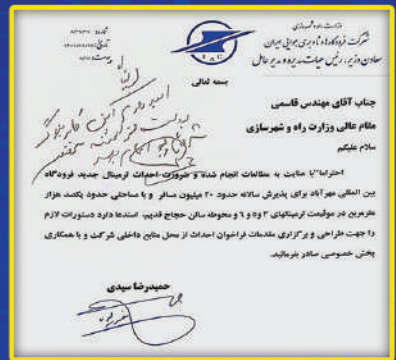 وزارت راه و شهرسازی
شرکت فرودگاه‌ها و ناوبری هوایی ایران
معاون وزیر، رئیس هیات مدیره و مدیر عامل
IAC
شماره
تاریخ
پیوست
بسمه تعالی
جناب آقای مهندس قاسمی
مقام عالی وزارت راه و شهرسازی
سلام علیکم
احتراما" با عنایت به مطالعات انجام شده و ضرورت احداث ترمینال جدید فرودگاه
بین المللی مهرآباد برای پذیرش سالانه حدود ۳۰ میلیون مسافر و با مساحتی حدود یکصد هزار
مترمربع در موقعیت ترمینالهای ۲ و ۶ و محوطه سالن حجاج قدیم، استدعا دارد دستورات لازم
را جهت طراحی و برگزاری مقدمات فراخوان احداث از محل منابع داخلی شرکت و با همکاری
بخش خصوصی صادر بفرمائید.
حمیدرضا سیدی